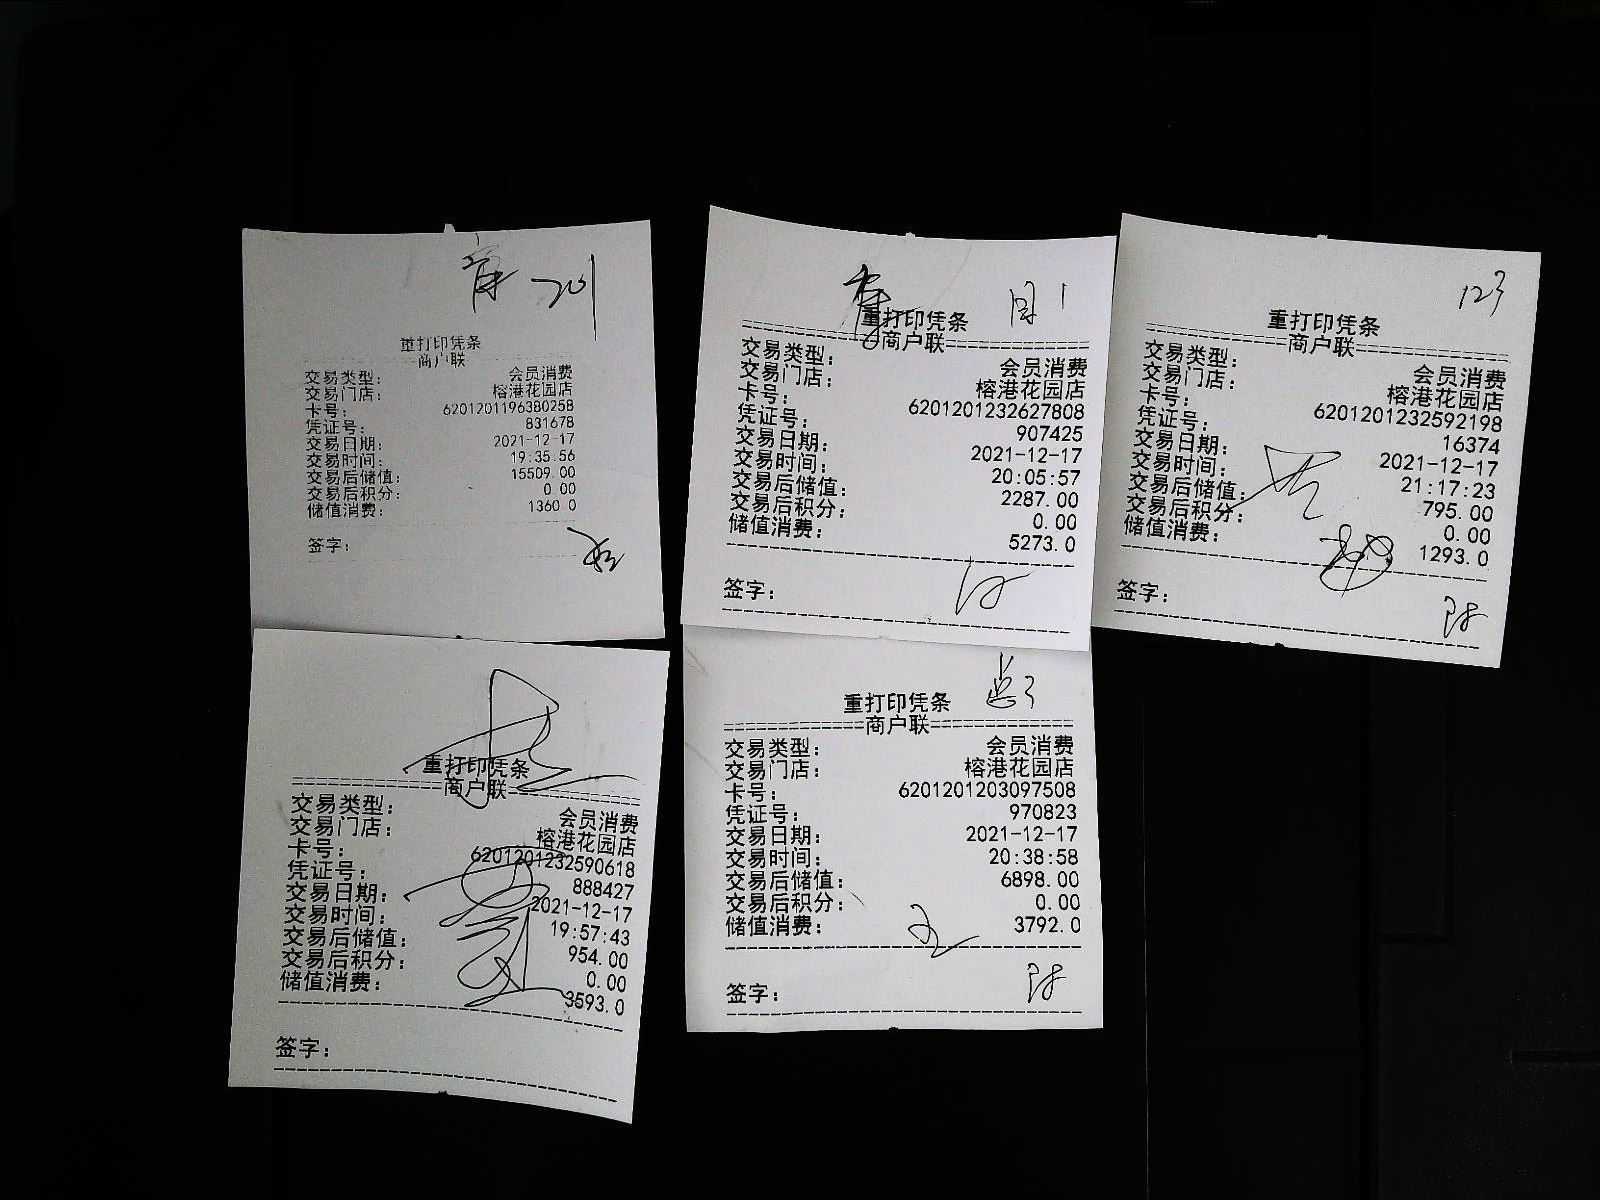 重打印凭条
商户联
交易类型： 会员消费
交易门店： 榕港花园店
卡号： 6201201196380258
凭证号： 831678
交易日期： 2021-12-17
交易时间： 19:35:56
交易后储值： 15509.00
交易后积分： 0.00
储值消费： 1360.0
签字：
重打印凭条
商户联
交易类型： 会员消费
交易门店： 榕港花园店
卡号： 6201201232627808
凭证号： 907425
交易日期： 2021-12-17
交易时间： 20:05:57
交易后储值： 2287.00
交易后积分： 0.00
储值消费： 5273.0
签字：
123
重打印凭条
商户联
交易类型： 会员消费
交易门店： 榕港花园店
卡号： 6201201232592198
凭证号： 16374
交易日期： 2021-12-17
交易时间： 21:17:23
交易后储值： 795.00
交易后积分： 0.00
储值消费： 1293.0
签字：
重打印凭条
商户联
交易类型： 会员消费
交易门店： 榕港花园店
卡号： 6201201232590618
凭证号： 888427
交易日期： 2021-12-17
交易时间： 19:57:43
交易后储值： 954.00
交易后积分： 0.00
储值消费： 3593.0
签字：
重打印凭条
商户联
交易类型： 会员消费
交易门店： 榕港花园店
卡号： 6201201203097508
凭证号： 970823
交易日期： 2021-12-17
交易时间： 20:38:58
交易后储值： 6898.00
交易后积分： 0.00
储值消费： 3792.0
签字：